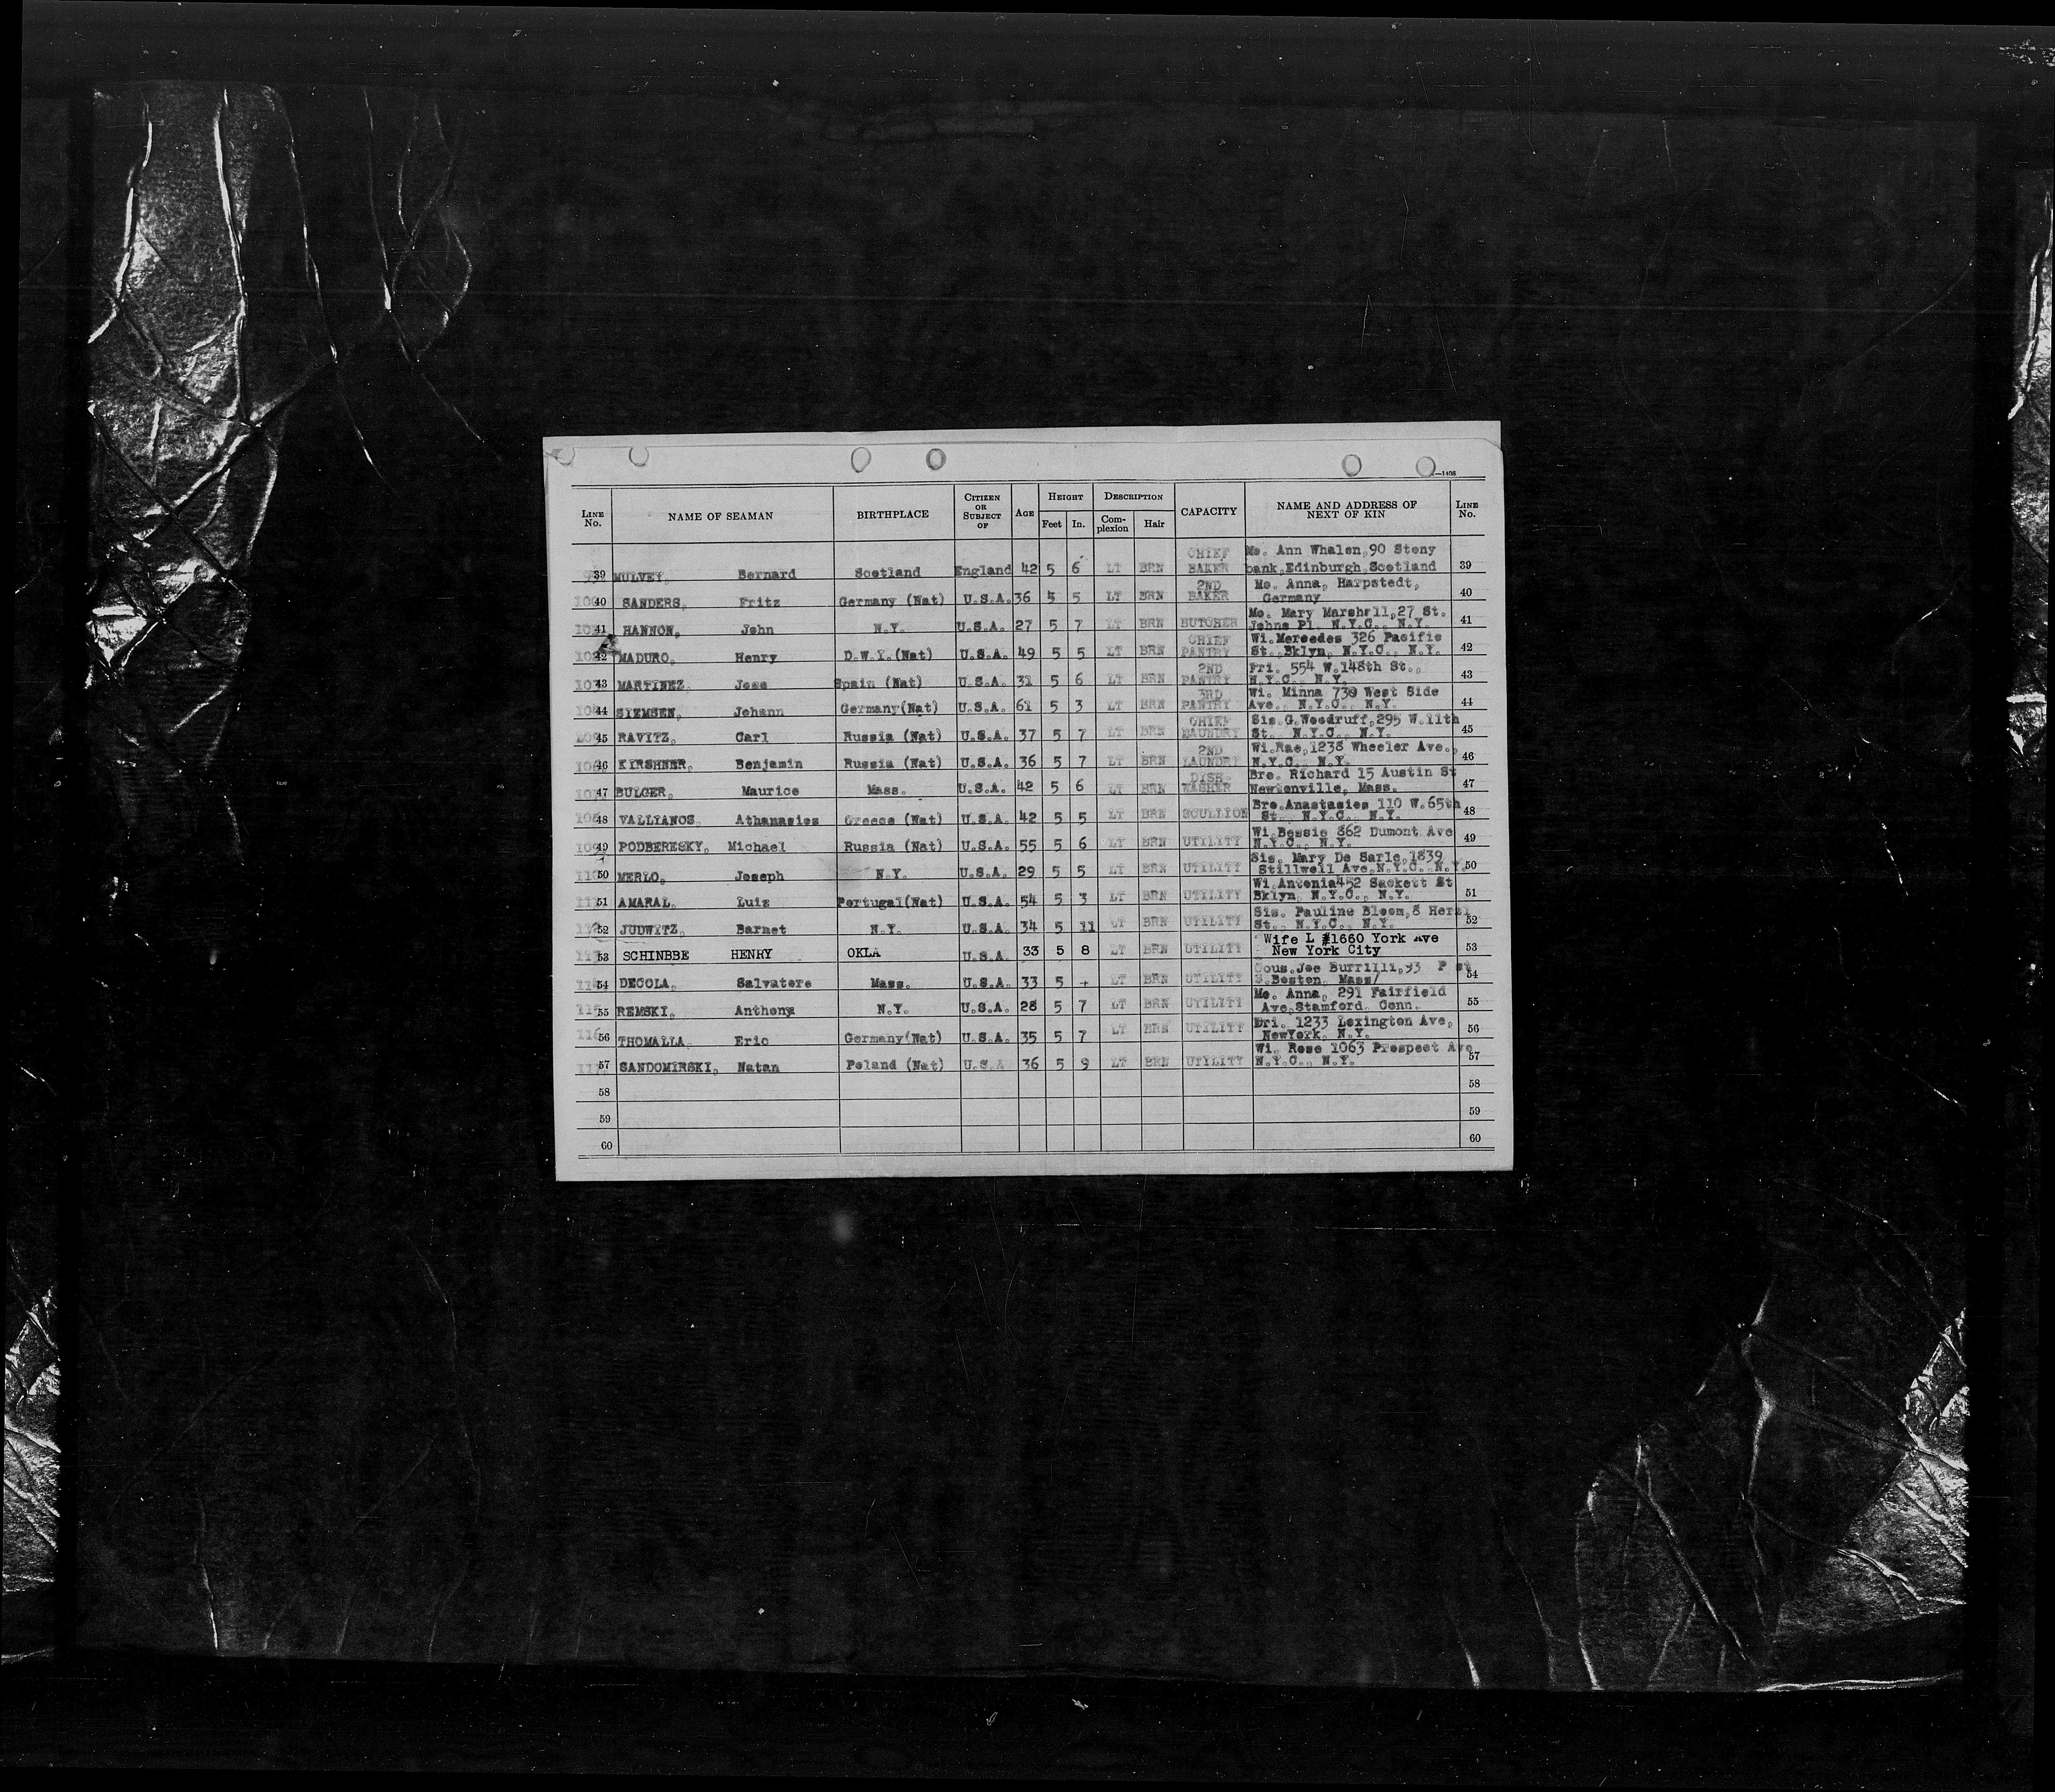 —1408
LINE No. NAME OF SEAMAN BIRTHPLACE CITIZEN OR SUBJECT OF AGE HEIGHT Feet In. DESCRIPTION Com-plexion Hair CAPACITY NAME AND ADDRESS OF NEXT OF KIN LINE No.
39 MULVEY, Bernard Scotland England 42 5 6 LT BRN CHIEF BAKER Mo. Ann Whalen, 90 Stony bank, Edinburgh, Scotland 39
40 SANDERS, Fritz Germany (Nat) U.S.A. 36 5 5 LT BRN 2ND BAKER Mo. Anna, Harpstedt, Germany 40
41 HANNON, John N.Y. U.S.A. 27 5 7 LT BRN BUTCHER Mo. Mary Marshall, 27 St. Johns Pl. N.Y.C., N.Y. 41
42 MADURO, Henry D.W.I.(Nat) U.S.A. 49 5 5 LT BRN CHIEF PANTRY Wi. Mercedes 326 Pacific St., Bklyn, N.Y.C., N.Y. 42
43 MARTINEZ Jose Spain (Nat) U.S.A. 31 5 6 LT BRN 2ND PANTRY Fri. 554 W.148th St., N.Y.C., N.Y. 43
44 SIEMSEN, Johann Germany(Nat) U.S.A. 61 5 3 LT BRN 3RD PANTRY Wi. Minna 730 West Side Ave., N.Y.C., N.Y. 44
45 RAVITZ, Carl Russia (Nat) U.S.A. 37 5 7 LT BRN CHIEF LAUNDRY Sis. G. Woodruff, 295 W.11th St., N.Y.C., N.Y. 45
46 KIRSHNER, Benjamin Russia (Nat) U.S.A. 36 5 7 LT BRN 2ND LAUNDRY Wi. Rae, 1238 Wheeler Ave., N.Y.C., N.Y. 46
47 BULGER, Maurice Mass. U.S.A. 42 5 6 LT BRN DISH WASHER Bro. Richard 15 Austin St Newtonville, Mass. 47
48 VALLIANOS, Athanasios Greece (Nat) U.S.A. 42 5 5 LT BRN SCULLION Bro. Anastasios 110 W.65th St., N.Y.C., N.Y. 48
49 PODBERESKY, Michael Russia (Nat) U.S.A. 55 5 6 LT BRN UTILITY Wi. Bessie 862 Dumont Ave N.Y.C., N.Y. 49
50 MERLO, Joseph N.Y. U.S.A. 29 5 5 LT BRN UTILITY Sis. Mary De Sarle, 1839 Stillwell Ave, N.Y.C., N.Y. 50
51 AMARAL, Luiz Portugal(Nat) U.S.A. 54 5 3 LT BRN UTILITY Wi. Antonia 452 Sackett St Bklyn, N.Y.C., N.Y. 51
52 JUDWITZ, Barnet N.Y. U.S.A. 34 5 11 LT BRN UTILITY Sis. Pauline Bloom, 8 Herzl St., N.Y.C., N.Y. 52
53 SCHINBBE HENRY OKLA U.S.A. 33 5 8 LT BRN UTILITY Wife L #1660 York Ave New York City 53
54 DECOLA, Salvatore Mass. U.S.A. 33 5 4 LT BRN UTILITY Cous. Joe Burrilli, 93 P st S. Boston, Mass/ 54
55 REMSKI, Anthony N.Y. U.S.A. 28 5 7 LT BRN UTILITY Mo. Anna, 291 Fairfield Ave, Stamford, Conn. 55
56 THOMALLA, Eric Germany(Nat) U.S.A. 35 5 7 LT BRN UTILITY Dri. 1233 Lexington Ave, NewYork, N.Y. 56
57 SANDOMIRSKI, Natan Poland (Nat) U.S.A 36 5 9 LT BRN UTILITY Wi. Rose 1063 Prospect Ave N.Y.C., N.Y. 57
58 58
59 59
60 60